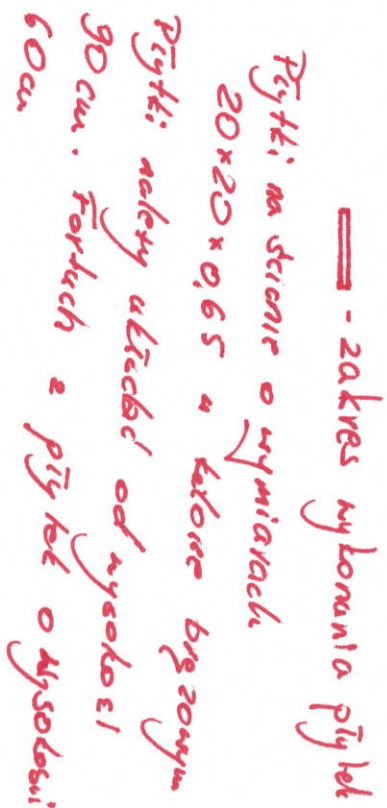 - zakres wykonania płytek
Płytki na ścianie o wymiarach
20x20x0,65 w kolorze brązowym
Płytki należy układać od wysokości
90 cm. Fartuch z płytek o wysokości
60cm